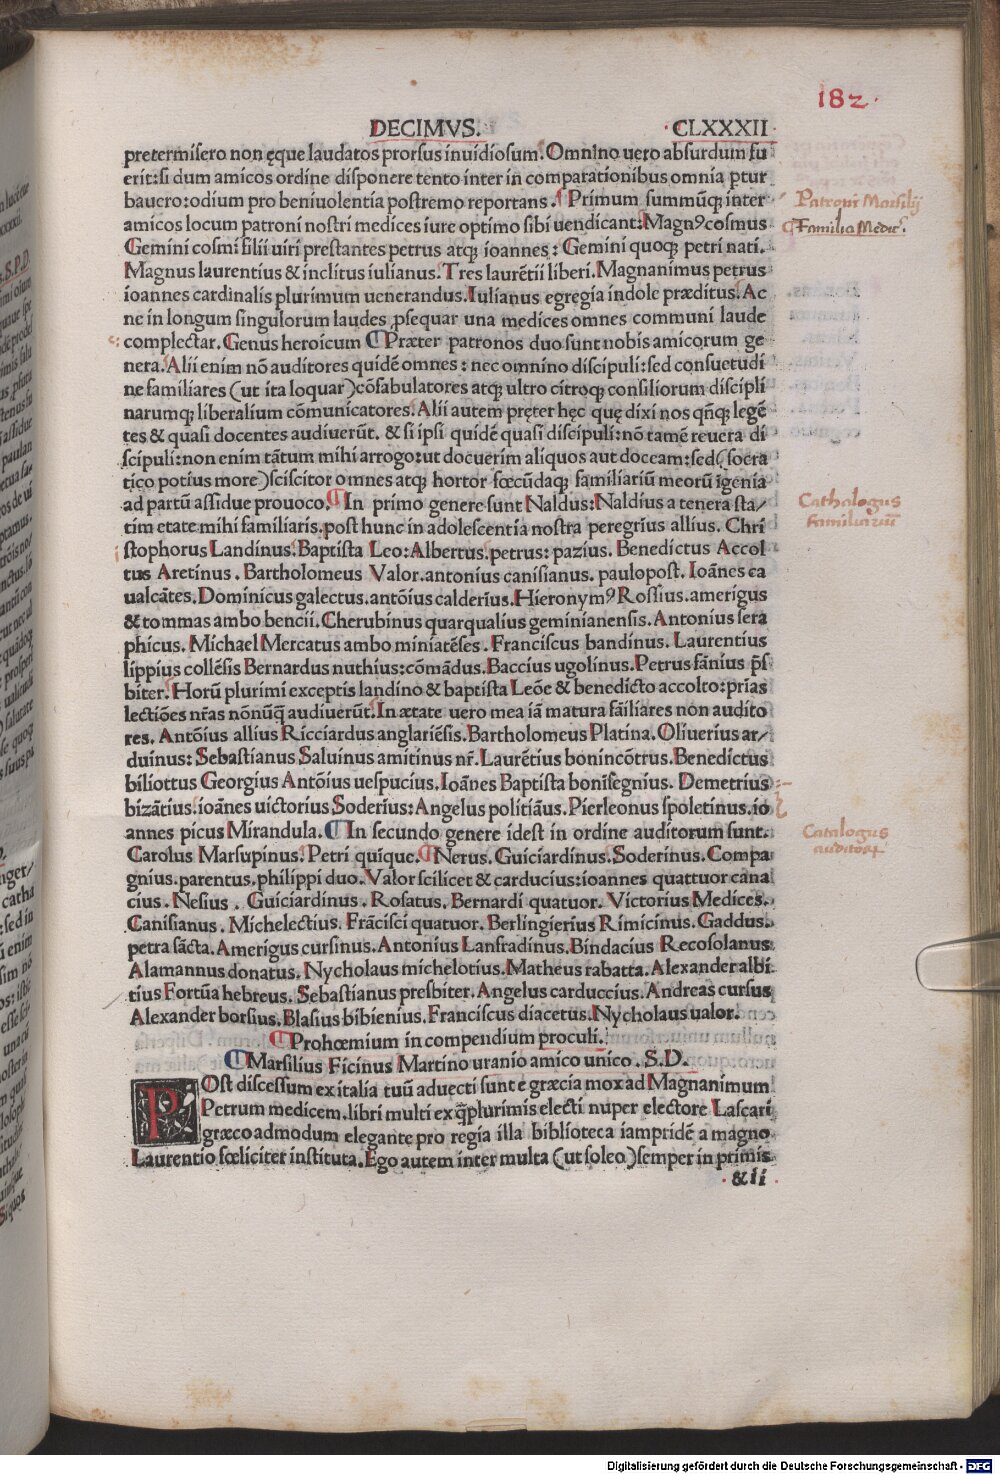 182.
DECIMVS. ·CLXXXII
pretermisero non ęque laudatos prorsus inuidiosum. Omnino uero absurdum fu
erit: si dum amicos ordine disponere tento inter in comparationibus omnia ꝑtur
bauero: odium pro beniuolentia postremo reportans. ¶ Primum summūqꝫ inter
amicos locum patroni nostri medices iure optimo sibi uendicant: Magnꝰ cosmus
Gemini cosmi filii uiri prestantes petrus atqꝫ ioannes: Gemini quoqꝫ petri nati.
Magnus laurentius & inclitus iulianus. Tres laurētii liberi. Magnanimus petrus
ioannes cardinalis plurimum uenerandus. Iulianus egregia indole præditus. Ac
ne in longum singulorum laudes ꝓsequar una medices omnes communi laude
complectar. Genus heroicum ¶ Præter patronos duo sunt nobis amicorum ge
nera. Alii enim nō auditores quidē omnes: nec omnino discipuli: sed consuetudi
ne familiares (ut ita loquar) cōfabulatores atqꝫ ultro citroqꝫ consiliorum discipli
narumqꝫ liberalium cōmunicatores. Alii autem pręter hęc quę dixi nos qñqꝫ legē
tes & quasi docentes audiuerūt. & si ipsi quidē quasi discipuli: nō tamē reuera di
scipuli: non enim tātum mihi arrogo: ut docuerim aliquos aut doceam: sed (socra
tico potius more) sciscitor omnes atqꝫ hortor fœcūdaqꝫ familiariū meorū īgenia
ad partū assidue prouoco. ¶ In primo genere sunt Naldus: Naldius a tenera sta/
tim etate mihi familiaris. post hunc in adolescentia nostra peregrius allius. Chri
stophorus Landinus. Baptista Leo: Albertus. petrus: pazius. Benedictus Accol
tus Aretinus. Bartholomeus Valor. antonius canisianus. paulopost. Ioānes ca
ualcātes. Dominicus galectus. antōius calderius. Hieronymꝰ Rossius. amerigus
& tommas ambo bencii. Cherubinus quarqualius geminianensis. Antonius sera
phicus. Michael Mercatus ambo miniatēses. Franciscus bandinus. Laurentius
lippius collēsis Bernardus nuthius: cōmādus. Baccius ugolinus. Petrus fānius p̄s
biter. Horū plurimi exceptis landino & baptista Leōe & benedicto accolto: prīas
lectiōes nr̄as nōnūq̄ audiuerūt. In ætate uero mea iā matura fāiliares non audito
res. Antōius allius Ricciardus anglariēsis. Bartholomeus Platina. Oliuerius ar/
duinus: Sebastianus Saluinus amitinus nr̄. Laurētius bonincōtrus. Benedictus
biliottus Georgius Antōius uespucius. Ioānes Baptista bonisegnius. Demetrius
bizātius. ioānes uictorius Soderius: Angelus politiāus. Pierleonus spoletinus. io
annes picus Mirandula. ¶ In secundo genere idest in ordine auditorum sunt.
Carolus Marsupinus. Petri quique. ¶ Nerus. Guiciardinus. Soderinus. Compa
gnius. parentus. philippi duo. Valor scilicet & carducius: ioannes quattuor cana
cius. Nesius. Guiciardinus. Rosatus. Bernardi quatuor. Victorius Medices.
Canisianus. Michelectius. Frācisci quatuor. Berlingierius Rimicinus. Gaddus.
petra sācta. Amerigus cursinus. Antonius Lanfradinus. Bindacius Recosolanus
Alamannus donatus. Nycholaus michelotius. Matheus rabatta. Alexander albi
tius Fortūa hebreus. Sebastianus presbiter. Angelus carduccius. Andreas cursus
Alexander borsius. Blasius bibienius. Franciscus diacetus. Nycholaus ualor.
¶ Prohœmium in compendium proculi.
¶ Marsilius Ficinus Martino uranio amico unico. S.D.
POst discessum ex italia tuū aduecti sunt e græcia mox ad Magnanimum
Petrum medicem. libri multi ex q̄plurimis electi nuper electore Lascari
græco admodum elegante pro regia illa biblioteca iampridē a magno
Laurentio fœliciter instituta. Ego autem inter multa (ut soleo) semper in primis
&ii
Patroni Marsilij
Familia Medic.
Cathalogus
familiariū
Catalogus
auditorꝝ
Digitalisierung gefördert durch die Deutsche Forschungsgemeinschaft - DFG